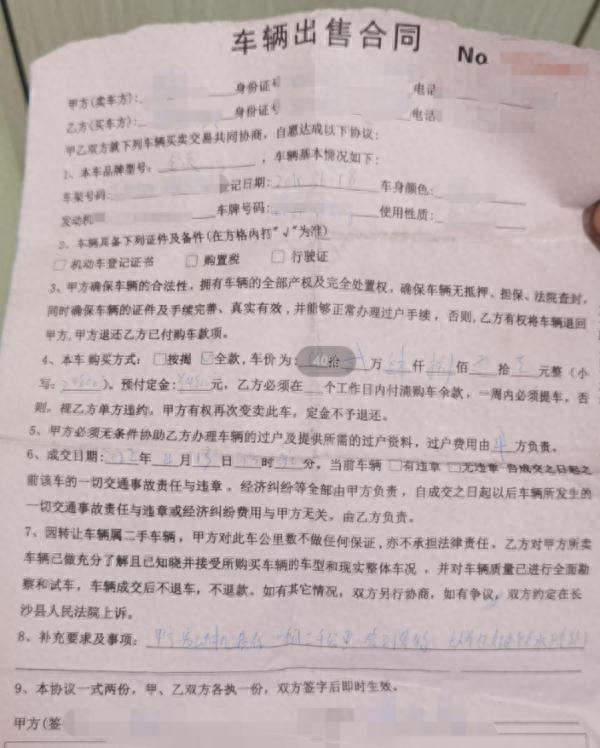 车辆出售合同
No
甲方(卖车方): 身份证号 电话
乙方(买车方): 身份证号 电话
甲乙双方就下列车辆买卖交易共同协商,自愿达成以下协议:
1、本车品牌型号: ,车辆基本情况如下:
车架号码: 登记日期: 车身颜色:
发动机 车牌号码: 使用性质:
2、车辆具备下列证件及备件(在方格内打"√"为准)
□机动车登记证书 □购置税 □行驶证
3、甲方确保车辆的合法性,拥有车辆的全部产权及完全处置权,确保车辆无抵押、担保、法院查封,
同时确保车辆的证件及手续完善、真实有效,并能够正常办理过户手续,否则,乙方有权将车辆退回
甲方,甲方退还乙方已付购车款项。
4、本车购买方式:□按揭 ☑全款,车价为: 40拾 万 仟 佰 拾 元整(小
写: )。预付定金: 元,乙方必须在 个工作日内付清购车余款,一周内必须提车,否
则,视乙方单方违约,甲方有权再次变卖此车,定金不予退还。
5、甲方必须无条件协助乙方办理车辆的过户及提供所需的过户资料,过户费用由 方负责。
6、成交日期: 年 月 日 时 分。当前车辆 □有违章 □无违章 自成交之日起之
前该车的一切交通事故责任与违章,经济纠纷等全部由甲方负责,自成交之日起以后车辆所发生的
一切交通事故责任与违章或经济纠纷费用与甲方无关,由乙方负责。
7、因转让车辆属二手车辆,甲方对此车公里数不做任何保证,亦不承担法律责任,乙方对甲方所卖
车辆已做充分了解且已知晓并接受所购买车辆的车型和现实整体车况,并对车辆质量已进行全面勘
察和试车,车辆成交后不退车,不退款。如有其它情况,双方另行协商,如有争议,双方约定在长
沙县人民法院上诉。
8、补充要求及事项:
9、本协议一式两份,甲、乙双方各执一份,双方签字后即时生效。
甲方(签